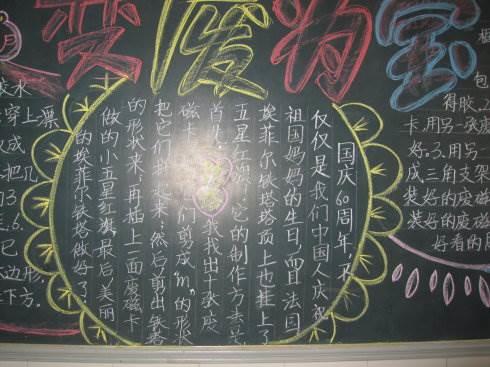 变废为宝
月
胶水
穿上一票
成
把几
3
6.
已
边形,
下方.
国庆60周年,不
仅仅是我们中国人庆祝
祖国妈妈的生日,而且法国
埃菲尔铁塔塔顶上也挂上了
五星红旗。它的制作方法是:
首先, 我找出十张废
磁卡 们剪成"m"的形状
把它们拼起来,然后剪出铁塔
的形状来,再插上一面废磁卡
做的小五星红旗,最后美丽
的埃菲尔铁塔做好了!
包
得胶.2
卡.用另一张废
好.3.用另一
成三角支架
装好的废磁
装好的废磁
好看的